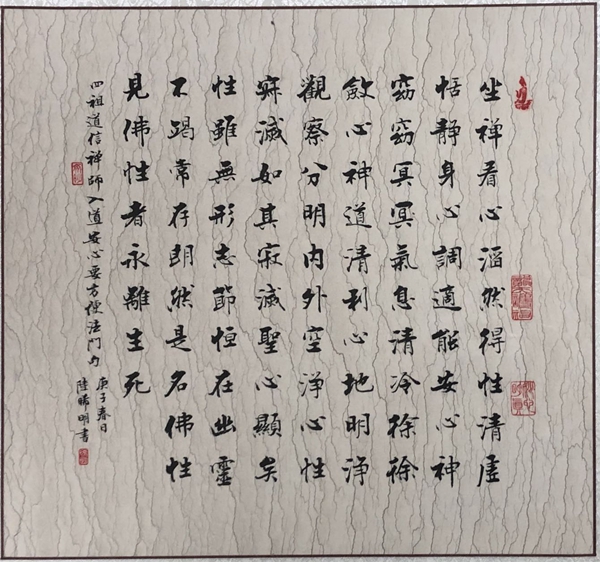 坐禪看心滔然得性清虛
恬靜身心調適能安心神
窈窈冥冥氣息清冷徐徐
斂心神道清利心地明淨
觀察分明内外空淨心性
寂滅如其寂滅聖心顯矣
性雖無形志節恒在幽靈
不竭常存朗然是名佛性
見佛性者永離生死
四祖道信禪師入道安心要方便法門
庚子春日
陸晞明書